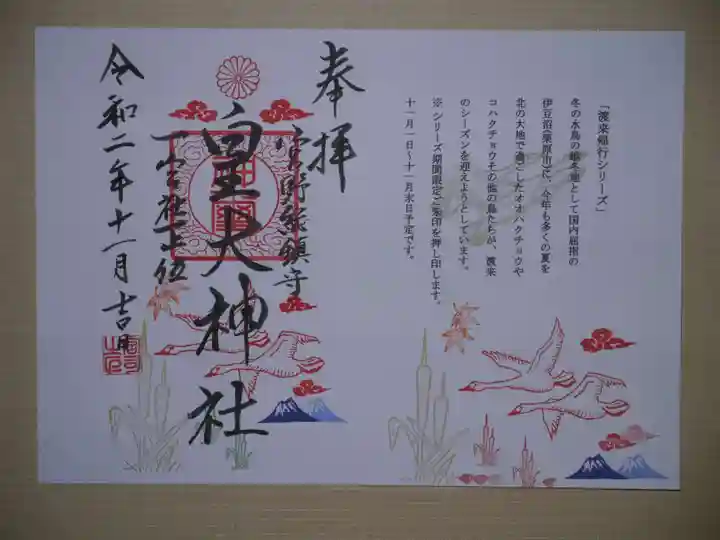 「渡来飛行シリーズ」
冬の水鳥の越冬地として国内屈指の
伊豆沼(栗原市)に、今年も多くの夏を
北の大地で過ごしたオオハクチョウや
コハクチョウその他の鳥たちが、渡来
のシーズンを迎えようとしています。
※シリーズ期間限定ご朱印を押し印します。
十一月一日〜十一月末日予定です。
奉拝
鎮守
皇大神社
令和二年十一月吉日